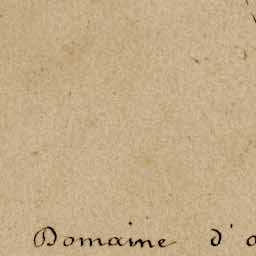 Domaine d'